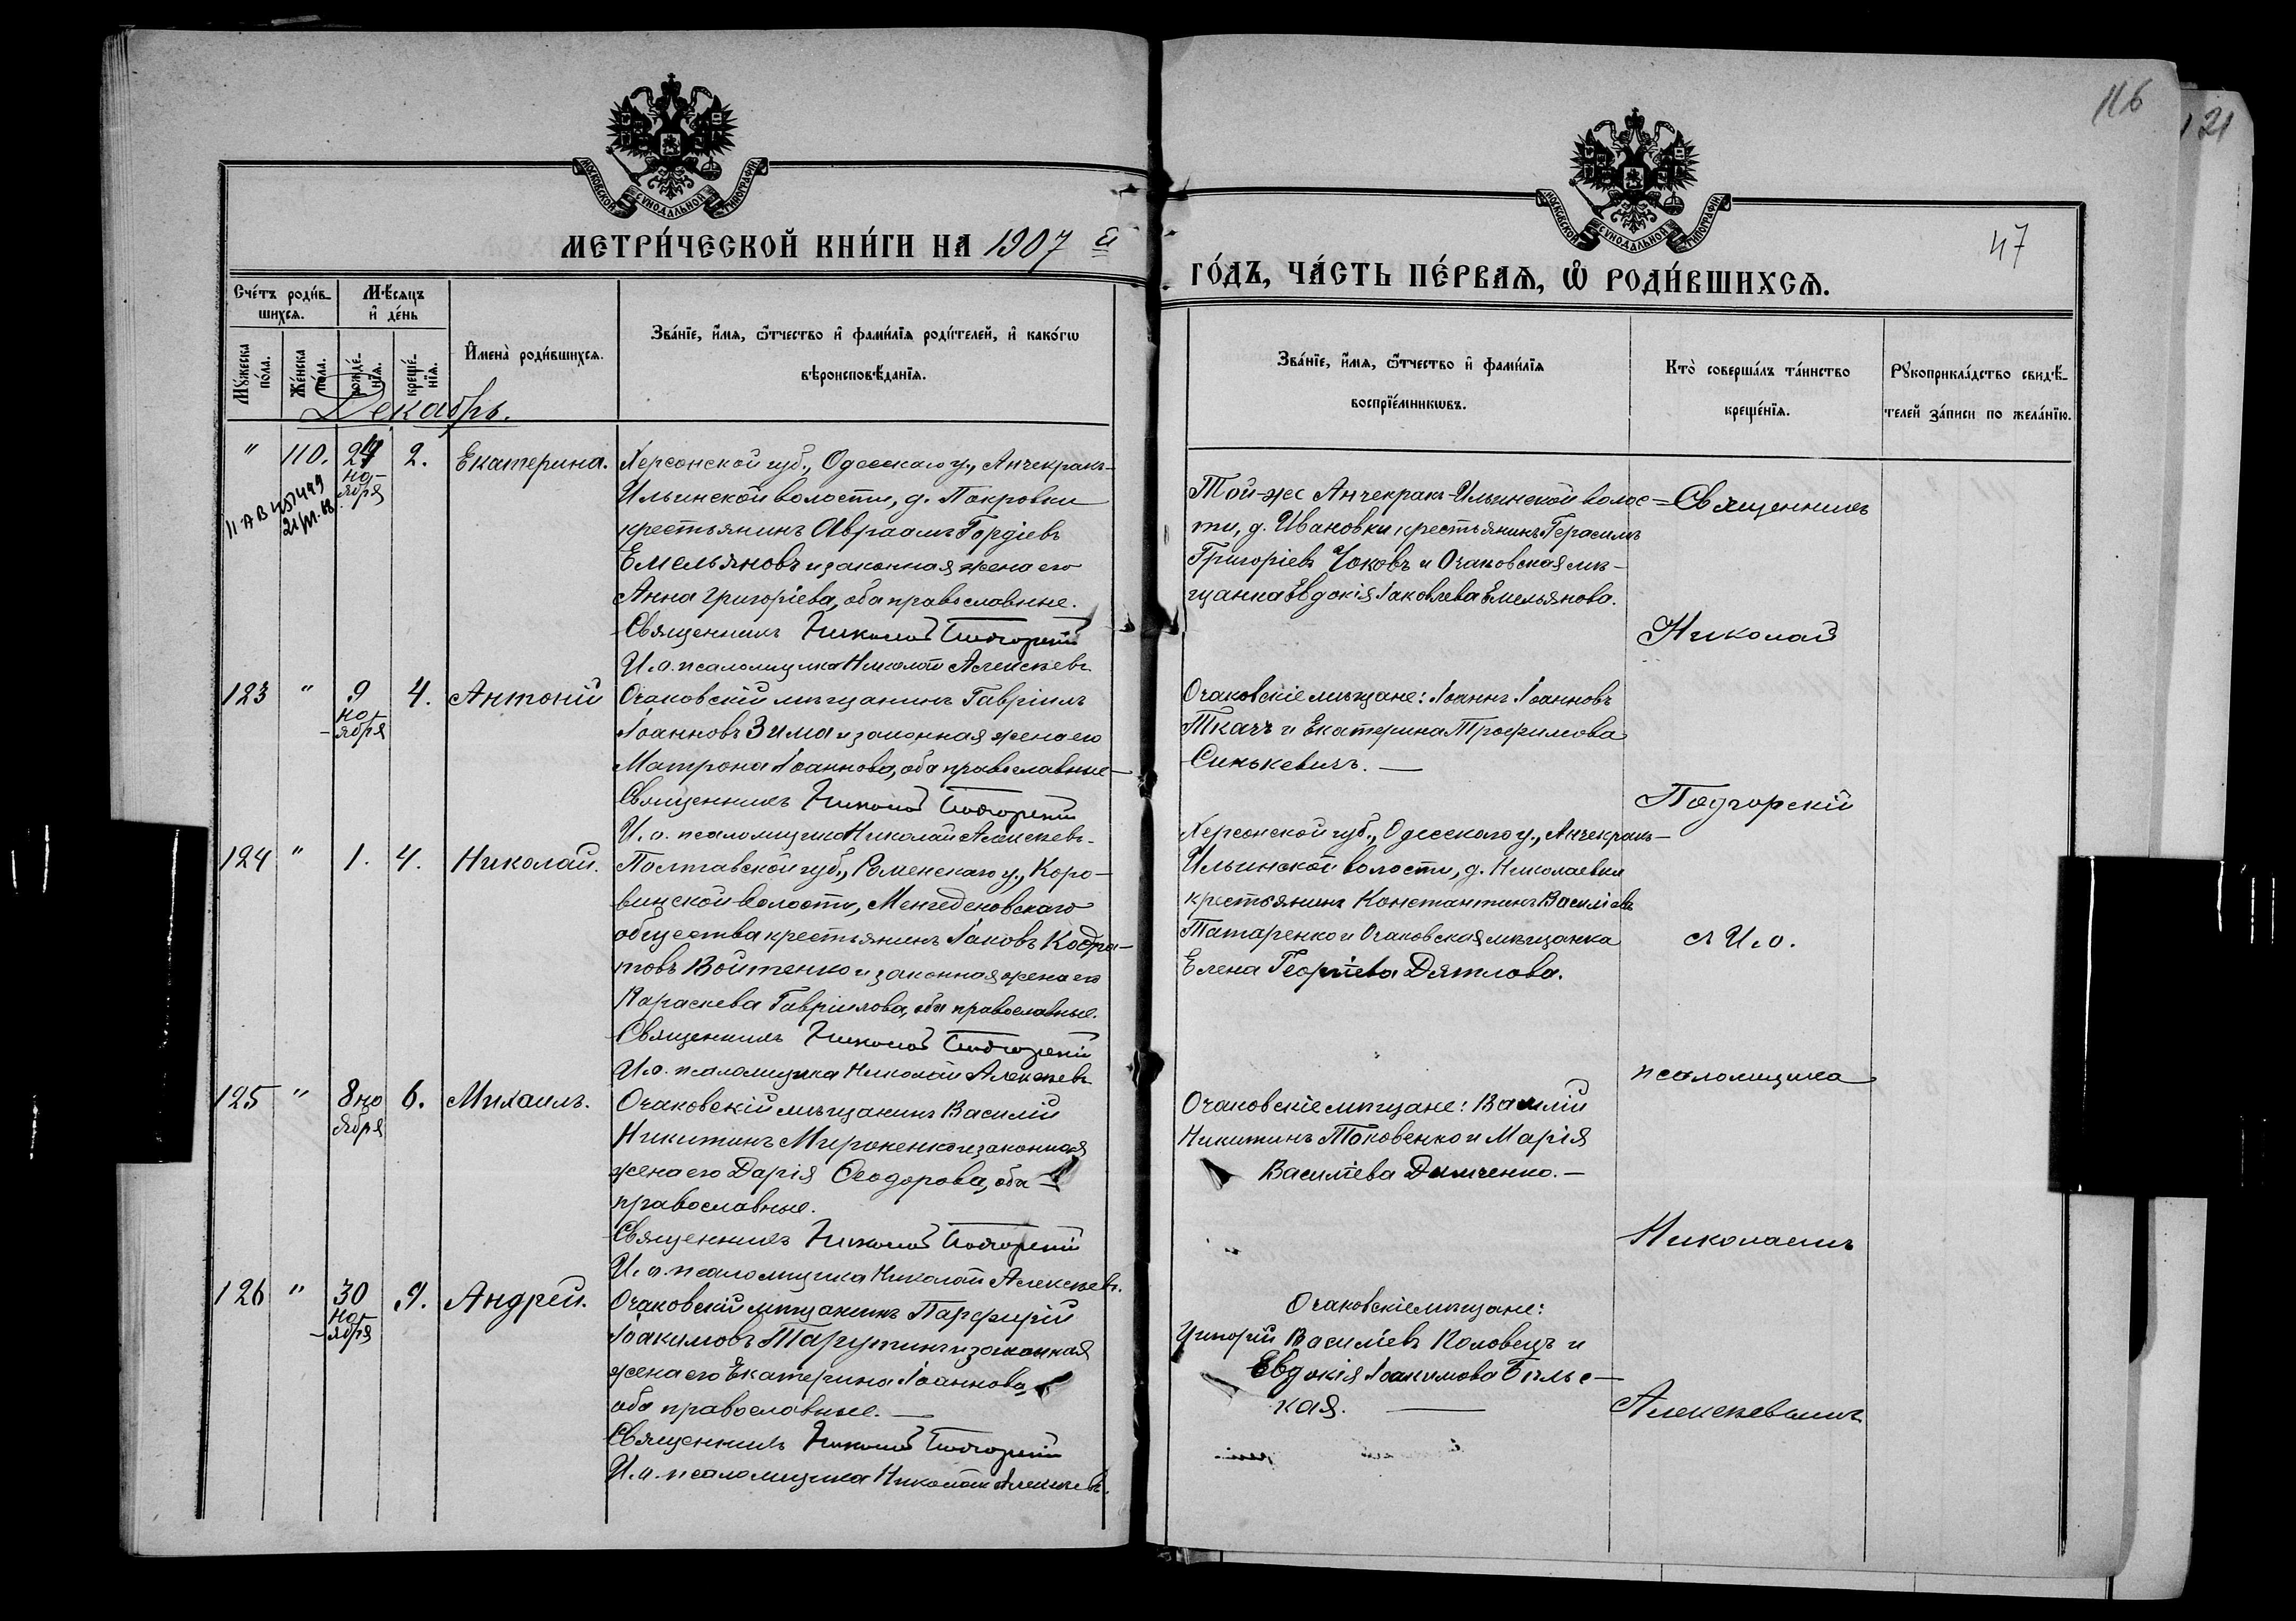 116
121
47
МОСКОВСКОЙ СУНОДАЛЬНОЙ ТИПОГРАФІИ
МОСКОВСКОЙ СУНОДАЛЬНОЙ ТИПОГРАФІИ
МЕТРИ́ЧЕСКОЙ КНИ́ГИ НА 1907 й
ГО́ДЪ, ЧА́СТЬ ПЕ́РВАѦ, Ѡ҆ РОДИ́ВШИХСѦ.
Сче́тъ роди́в-
шихсѧ.
Мѣ́сѧцъ
и҆ де́нь
Мꙋ́жеска
по́ла.
Же́нска
по́ла.
рожде́-
нїѧ.
креще́-
нїѧ.
И҆мена̀ роди́вшихсѧ.
Зва́нїе, и҆́мѧ, ѻ҆́тчество и҆ фами́лїѧ роди́телей, и҆ како́гѡ
вѣроисповѣ́данїѧ.
Зва́нїе, и҆́мѧ, ѻ҆́тчество и҆ фами́лїѧ
воспрїе́мникѡвъ.
Кто̀ соверша́лъ та́инство
креще́нїѧ.
Рꙋкоприкла́дство свидѣ́-
телей за́писи по жела́нїю.
Декабрь.
" 110. 24 но-
ября 2. Екатерина.
Херсонской губ., Одесскаго у., Анчекракъ-
Ильинской волости, д. Покровки
крестьянинъ Авраамъ Гордіевъ
Емельяновъ и законная жена его
Анна Григоріева, оба православные.
Священникъ Николай Подгорскій
И. о. псаломщика Николай Алексѣевъ
Той-же Анчекракъ-Ильинской волос-
ти, д. Ивановки крестьянинъ Герасимъ
Григоріевъ Чоковъ и Очаковская мѣ-
щанка Евдокія Іаковлева Емельянова.
Священникъ
Николай
123 " 9 но-
ября 4. Антоній
Очаковскій мѣщанинъ Гавріилъ
Іоанновъ Зима и законная жена его
Матрона Іоаннова, оба православные
Священникъ Николай Подгорскій
И. о. псаломщика Николай Алексѣевъ.
Очаковскіе мѣщане: Іоаннъ Іоанновъ
Ткачъ и Екатерина Трофимова
Синькевичъ.
Подгорскій
124 " 1. 4. Николай.
Полтавской губ., Роменскаго у., Коро-
винской волости,
общества крестьянинъ Іаковъ Кодра-
товъ Войтенко и законная жена его
Параскева Гавріилова, оба православные.
Священникъ Николай Подгорскій
И. о. псаломщика Николай Алексѣевъ
Херсонской губ., Одесскаго у., Анчекракъ-
Ильинской волости, д. Николаевки
крестьянинъ Константинъ Василіевъ
Татаренко и Очаковская мѣщанка
Елена Георгіева Дятлова.
съ И. о.
псаломщика
125 " 8 но
ября 6. Михаилъ.
Очаковскій мѣщанинъ Василій
Никитинъ Мироненко и законная
жена его Дарія Ѳеодорова, оба
православные.
Священникъ Николай Подгорскій
И. о. псаломщика Николай Алексѣевъ.
Очаковскіе мѣщане: Василій
Никитинъ Токовенко и Марія
Василіева Димченко.
Николаемъ
126 " 30 но-
ября 9. Андрей.
Очаковскій мѣщанинъ Парфирій
Іоакимовъ Тарутинъ и законная
жена его Екатерина Іоаннова,
оба православные.
Священникъ Николай Подгорскій
И. о. псаломщика Николай Алексѣевъ.
Очаковскіе мѣщане:
Григорій Василіевъ Коловецъ и
Евдокія Іоакимова Бѣльс-
кая.
Алексѣевымъ